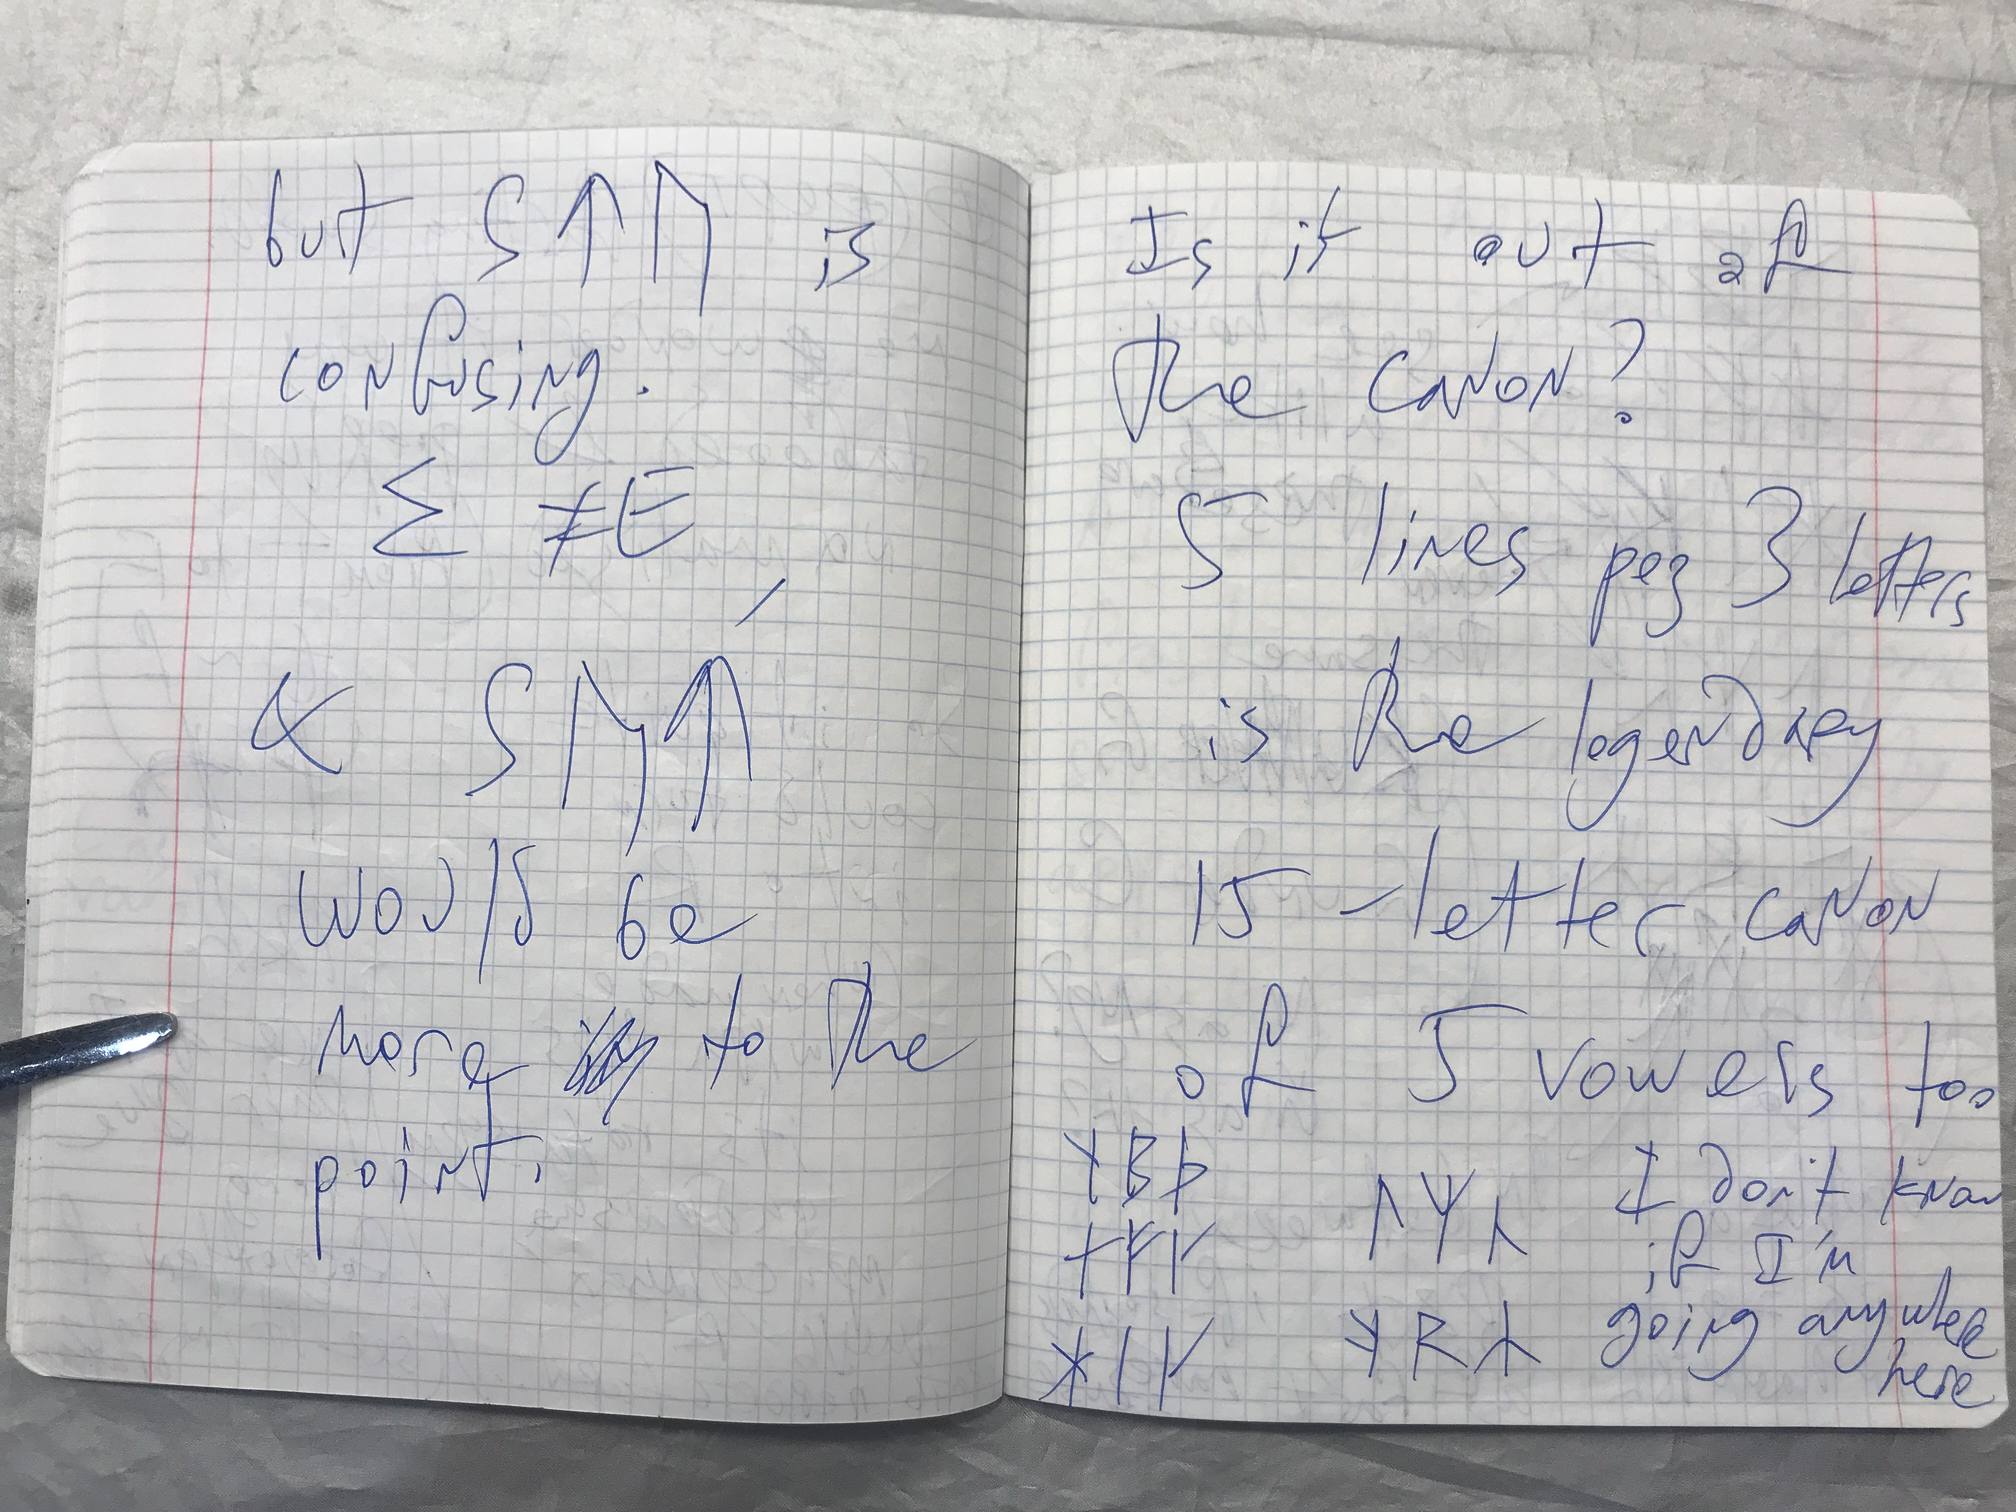 but SᛏᚢI is
confusing.
Σ ≠ E
& SᛖᛏI
would be
more to the
point.
Is it out of
the canon?
5 lines per 3 letters
is the legendary
15-letter canon
of 5 vowels too
I don't know
if I'm
going anywhere
here